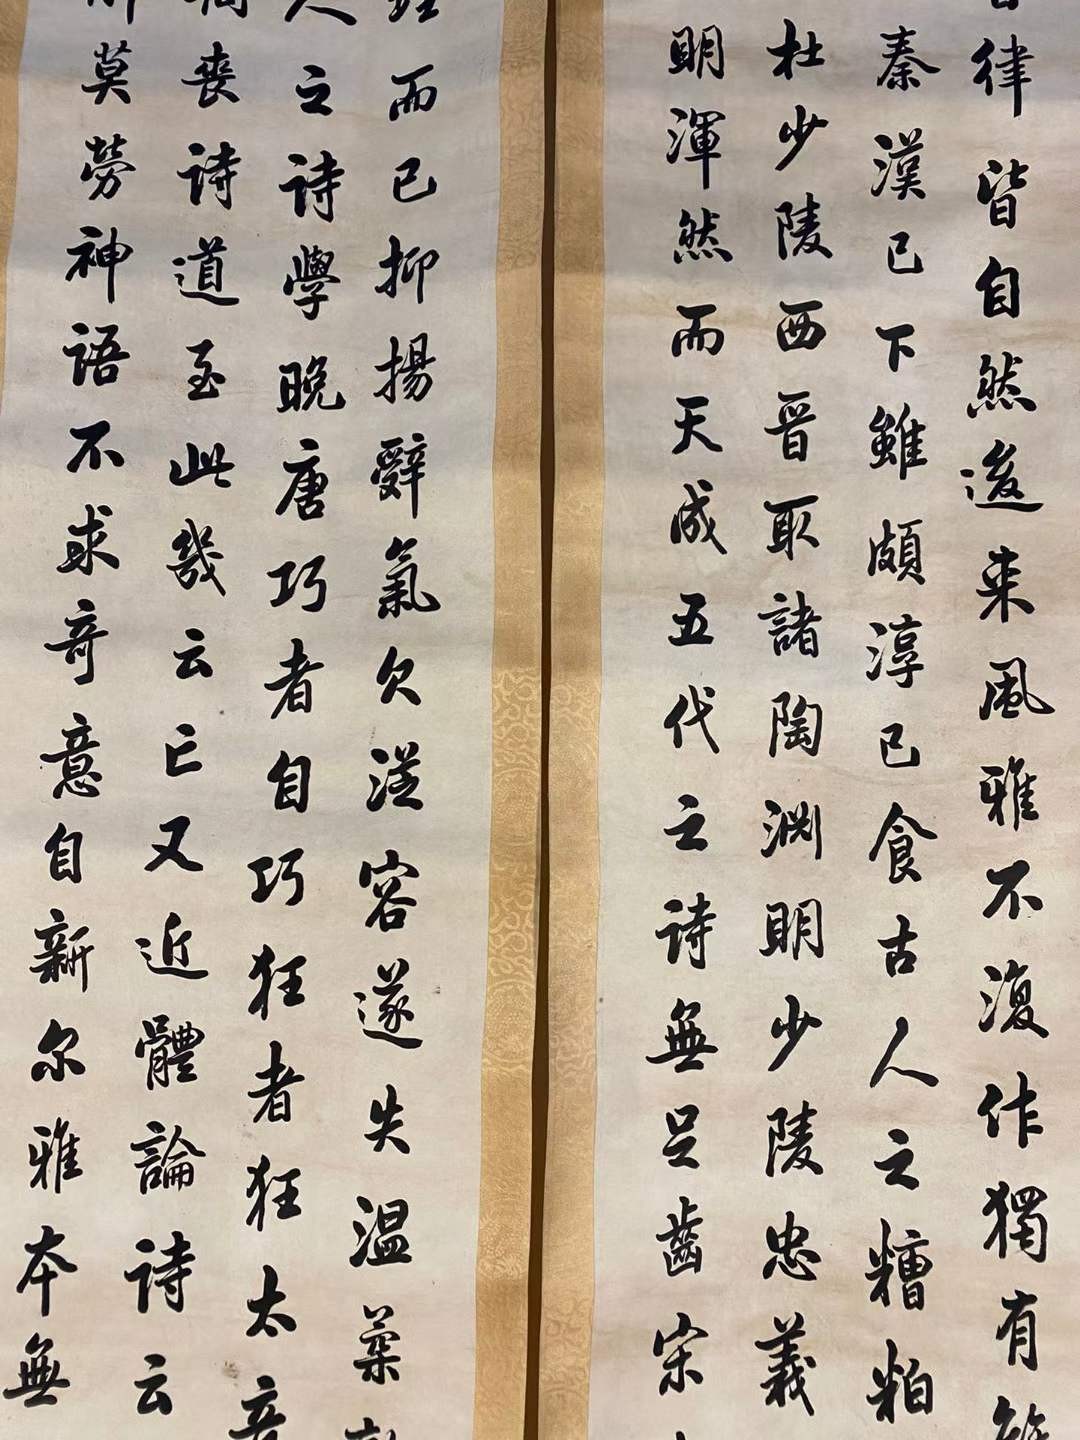 律皆自然逡来風雅不復作獨有
秦漢已下雖頗淳已食古人之糟粕
杜少陵西晋取諸陶渊明少陵忠義
明渾然而天成五代之詩無足齒宋
而已抑揚辭氣欠從容遂失温葉
人之詩學晚唐巧者自巧狂者狂太
喪詩道至此幾云亡又近體論詩云
莫勞神語不求奇意自新尔雅本無